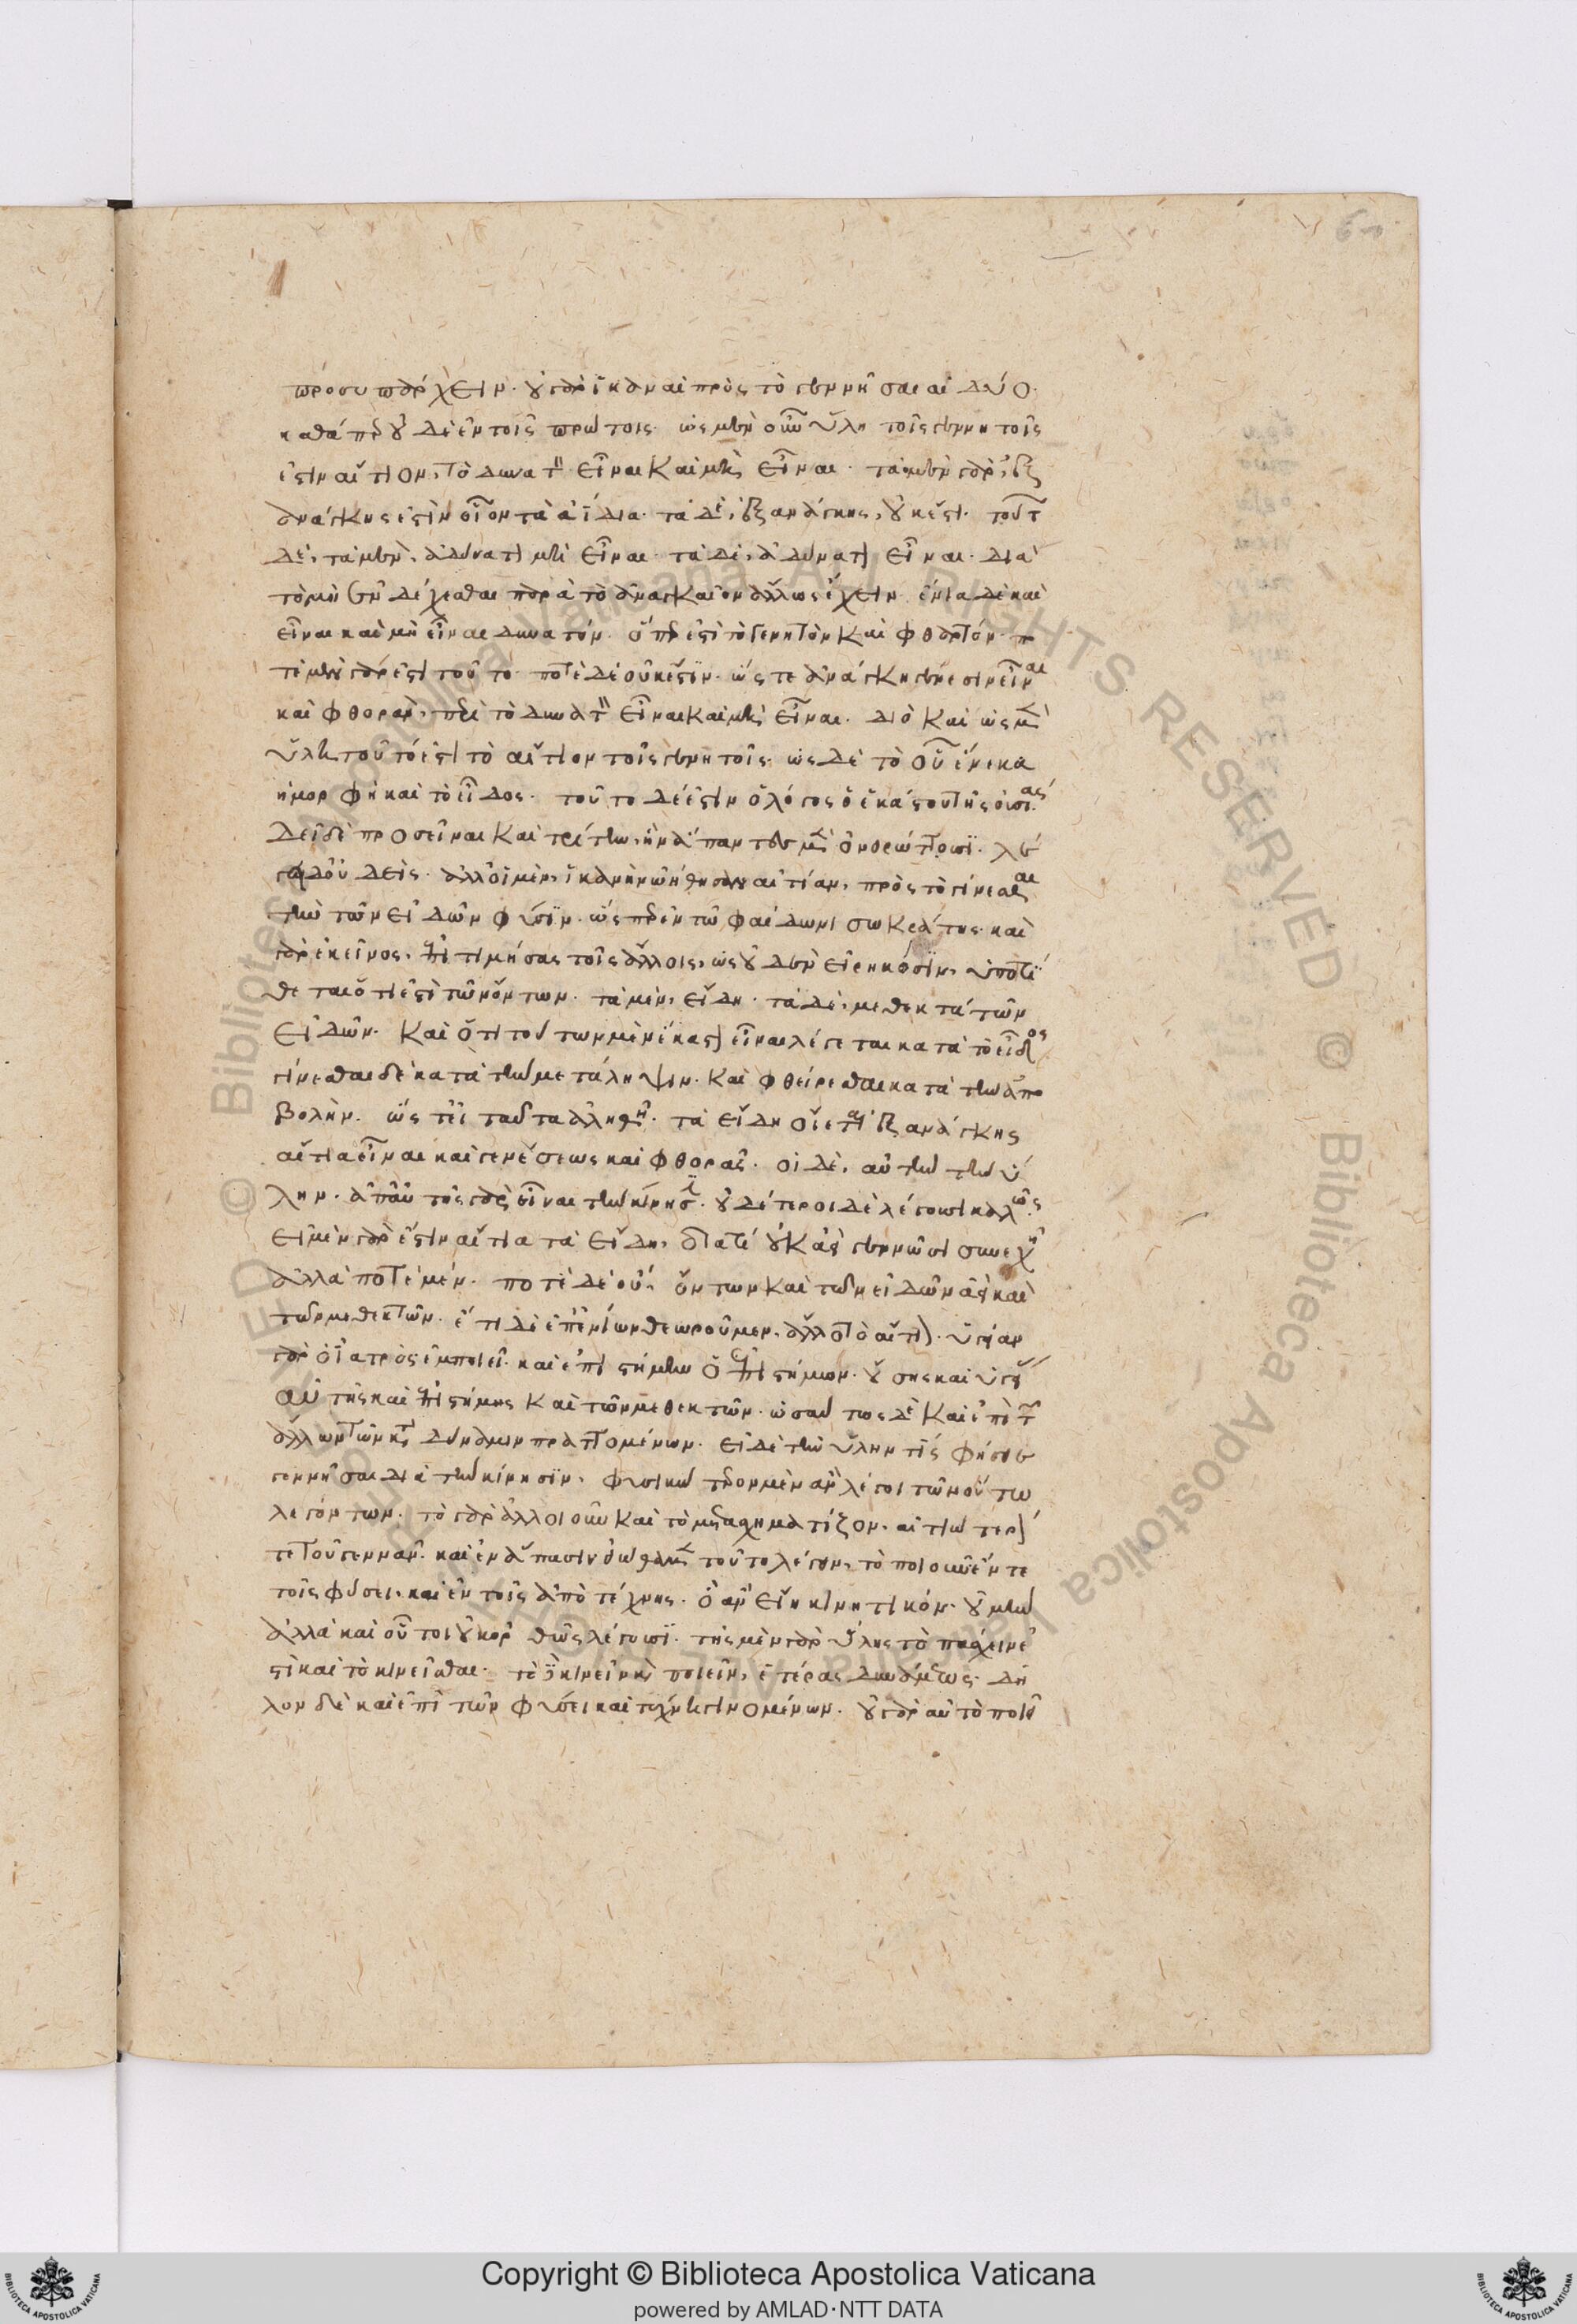 προσυπάρχειν. οὐ γὰρ ἱκαναὶ πρὸς τὸ γεννῆσαι αἱ δύο.
καθάπερ οὐδὲ ἐν τοῖς πρώτοις. ὡς μὲν οὖν ὕλη τοῖς γεννητοῖς
ἐστὶν αἴτιον, τὸ δυνατὸν εἶναι καὶ μὴ εἶναι. τὰ μὲν γὰρ, ἐξ
ἀνάγκης ἐστὶν οἷον τὰ ἀΐδια. τὰ δὲ, ἐξ ἀνάγκης, οὐκ ἔστι. τούτων
δὲ, τὰ μὲν, ἀδύνατον μὴ εἶναι. τὰ δὲ, ἀδύνατον εἶναι. διὰ
τὸ μὴ ἐνδέχεσθαι παρὰ τὸ ἀναγκαῖον ἄλλως ἔχειν. ἔνια δὲ καὶ
εἶναι καὶ μὴ εἶναι δυνατόν. ὅπερ ἐστὶ τὸ γενητὸν καὶ φθαρτόν. πο
τὲ μὲν γὰρ ἔστι τοῦτο. ποτὲ δὲ οὐκ ἔστιν. ὥστε ἀνάγκη γένεσιν εἶναι
καὶ φθορὰν, περὶ τὸ δυνατὸν εἶναι καὶ μὴ εἶναι. διὸ καὶ ὡς μὲν
ὕλη τοῦτό ἐστι τὸ αἴτιον τοῖς γενητοῖς. ὡς δὲ τὸ οὗ ἕνεκα
ἡ μορφὴ καὶ τὸ εἶδος. τοῦτο δέ ἐστιν ὁ λόγος ὁ ἑκάστου τῆς οὐσίας.
δεῖ δὲ προσεῖναι καὶ τρίτην, ἣν ἅπαντες μὲν ὀνειρώττουσι. λέ
γει δ' οὐδείς. ἀλλ' οἱ μὲν, ἱκανὴν ᾠήθησαν αἰτίαν, πρὸς τὸ γίνεσθαι
τὴν τῶν εἰδῶν φύσιν. ὥσπερ ἐν τῷ φαίδωνι σωκράτης. καὶ
γὰρ ἐκεῖνος, ἐπιτιμήσας τοῖς ἄλλοις, ὡς οὐδὲν εἰρηκόσιν, ὑποτί
θεται ὅτι ἐστὶ τῶν ὄντων. τὰ μὲν, εἴδη. τὰ δὲ, μεθεκτὰ τῶν
εἰδῶν. καὶ ὅτι τούτων μὲν ἕκαστον εἶναι λέγεται κατὰ τὸ εἶδος
γίνεσθαι δὲ κατὰ τὴν μετάληψιν. καὶ φθείρεσθαι κατὰ τὴν ἀπο
βολήν. ὥστ' εἰ ταῦτα ἀληθῆ. τὰ εἴδη οἴεται ἐξ ἀνάγκης
αἴτια εἶναι καὶ γενέσεως καὶ φθορᾶς. οἱ δὲ, αὐτὴν τὴν ὕ
λην. ἀπὸ ταύτης γὰρ εἶναι τὴν κίνησιν. οὐδέτεροι δὲ λέγουσι καλῶς.
εἰ μὲν γάρ ἐστιν αἴτια τὰ εἴδη, διατί οὐκ ἀεὶ γεννῶσι συνεχῶς
ἀλλὰ ποτὲ μέν. ποτὲ δὲ οὔ, ὄντων καὶ τῶν εἰδῶν ἀεὶ καὶ
τῶν μεθεκτῶν. ἔτι δὲ ἐπ' ἐνίων θεωροῦμεν, ἄλλο τὸ αἴτιον. ὑγίειαν
γὰρ ὁ ἰατρὸς ἐμποιεῖ. καὶ ἐπιστήμην ὁ ἐπιστήμων. οὔσης καὶ ὑγιείας
αὐτῆς καὶ ἐπιστήμης καὶ τῶν μεθεκτῶν. ὡσαύτως δὲ καὶ ἐπὶ τῶν
ἄλλων τῶν κατὰ δύναμιν πραττομένων. εἰ δὲ τὴν ὕλην τίς φήσειε
γεννῆσαι διὰ τὴν κίνησιν, φυσικώτερον μὲν ἂν λέγοι τῶν οὕτω
λεγόντων. τὸ γὰρ ἀλλοιοῦν καὶ τὸ μετασχηματίζον, αἰτιώτερόν
τε τοῦ γεννᾶν. καὶ ἐν ἅπασιν εἰώθαμεν τοῦτο λέγειν, τὸ ποιοῦν ἔν τε
τοῖς φύσει, καὶ ἐν τοῖς ἀπὸ τέχνης. ὃ ἂν εἴη κινητικόν. οὐ μὴν
ἀλλὰ καὶ οὗτοι οὐκ ὀρθῶς λέγουσι. τῆς μὲν γὰρ ὕλης τὸ πάσχειν ἐ
στὶ καὶ τὸ κινεῖσθαι. τὸ δὲ κινεῖν καὶ ποιεῖν, ἑτέρας δυνάμεως. δῆ
λον δὲ καὶ ἐπὶ τῶν φύσει καὶ τέχνῃ γινομένων. οὐ γὰρ αὐτὸ ποιεῖ
Copyright © Biblioteca Apostolica Vaticana
powered by AMLAD·NTT DATA